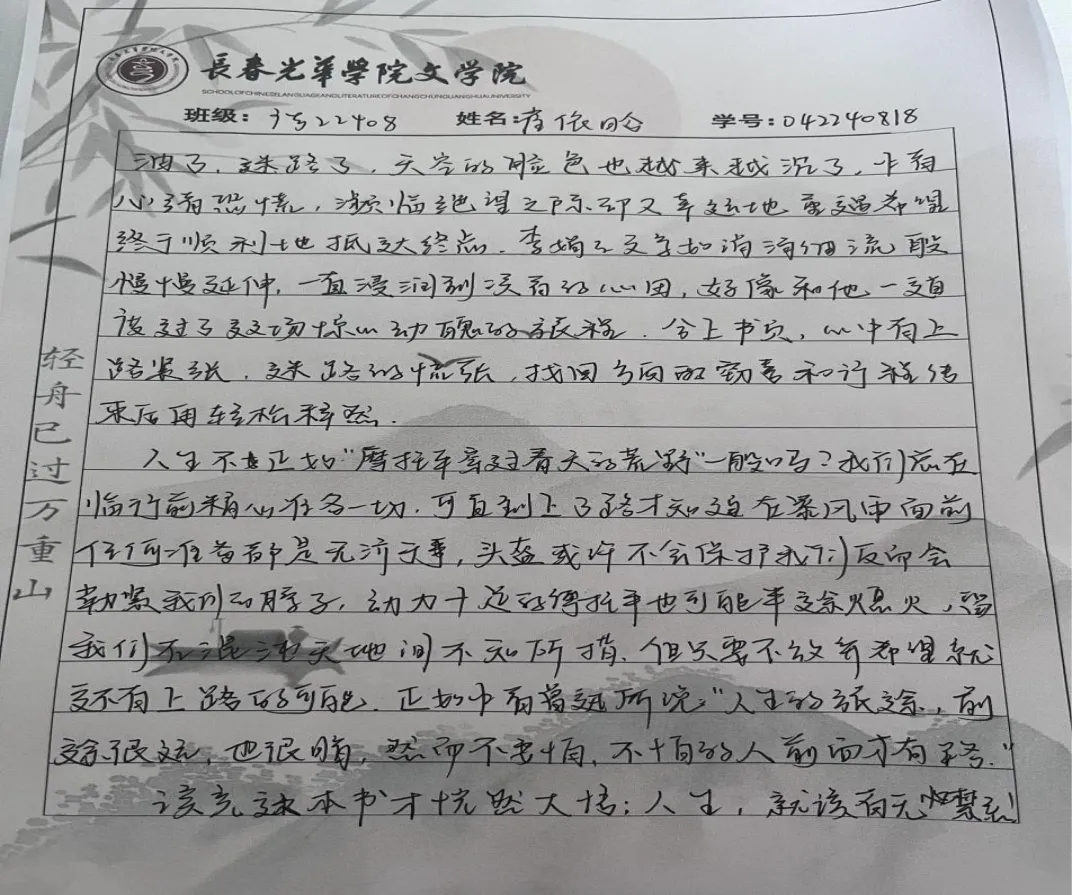 長春光華學院文学院
SCHOOL OF CHINESE LANGUAGE AND LITERATURE OF CHANGCHUN GUANGHUA UNIVERSITY
班级: 22408 姓名: 依晗 学号: 042240818
油了，迷路了，天空的脸色也越来越沉了，卡有
心有恐慌，濒临绝望之际却又幸运地重遇希望
终于顺利地抵达终点．李娟文字如涓涓细流般
慢慢延伸，一直浸润到读者的心田，好像和他一道
度过了这场惊心动魄的旅程．合上书页，心中有上
路紧张，迷路的慌张，找回方向的惊喜和行程结
束后的轻松释然．
人生不也正如"摩托车穿过春天的荒野"一般吗？我们总在
临行前精心准备一切，可直到上了路才知道在暴风雨面前
任何准备都是无济于事，头盔或许不会保护我们反而会
勒紧我们的脖子，动力十足的摩托车也可能半途熄火，留
我们在混沌天地间不知所措．但只要不放弃希望就
还有上路的可能．正如中有岛武郎所说"人生的旅途，前
途很远，也很暗，然而不要怕，不怕的人前面才有路．"
读完这本书才恍然大悟：人生，就该有无
轻舟已过万重山